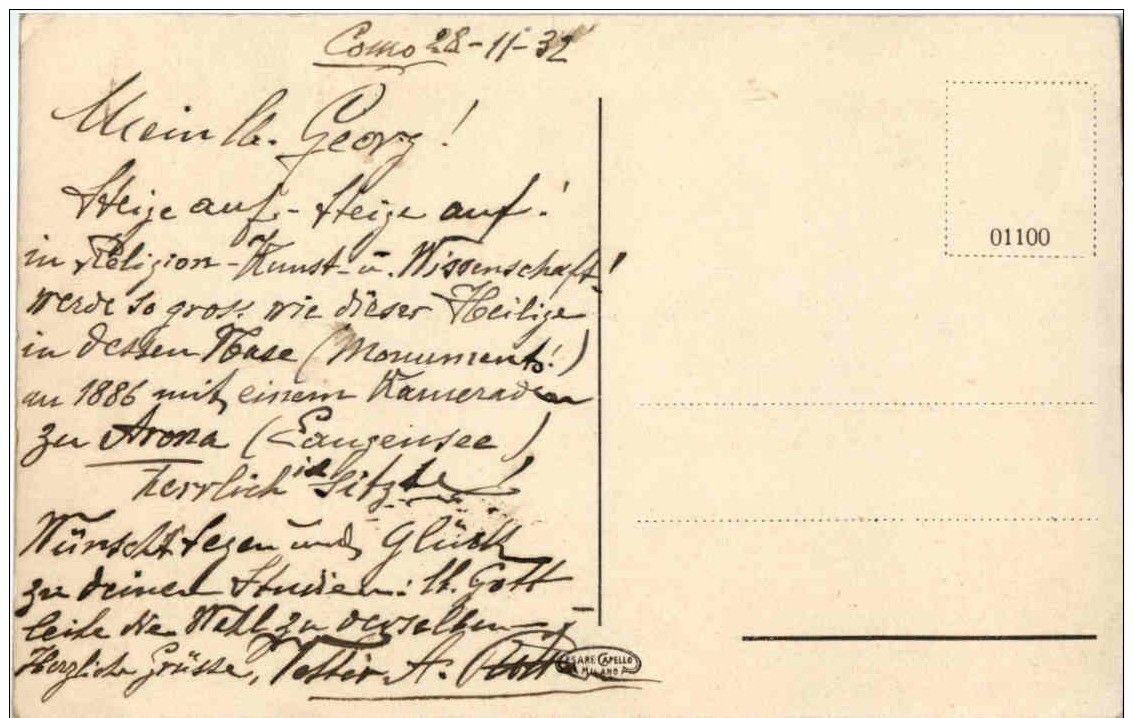 Como 28-11-32
Mein lb. Georg!
Steige auf - steige auf!
in Religion - Kunst - u. Wissenschaft!
werde so gross wie dieser Heilige
in dessen Nase (Monument!)
an 1886 mit einem Kameraden
zu Arona (Langensee)
herrlich ich sitzte!
Wünscht Segen und Glück
zu deinen Studien: lb. Gott
leite die Wahl zu derselben
Herzliche Grüsse, A.
CESARE CAPELLO
MILANO
01100